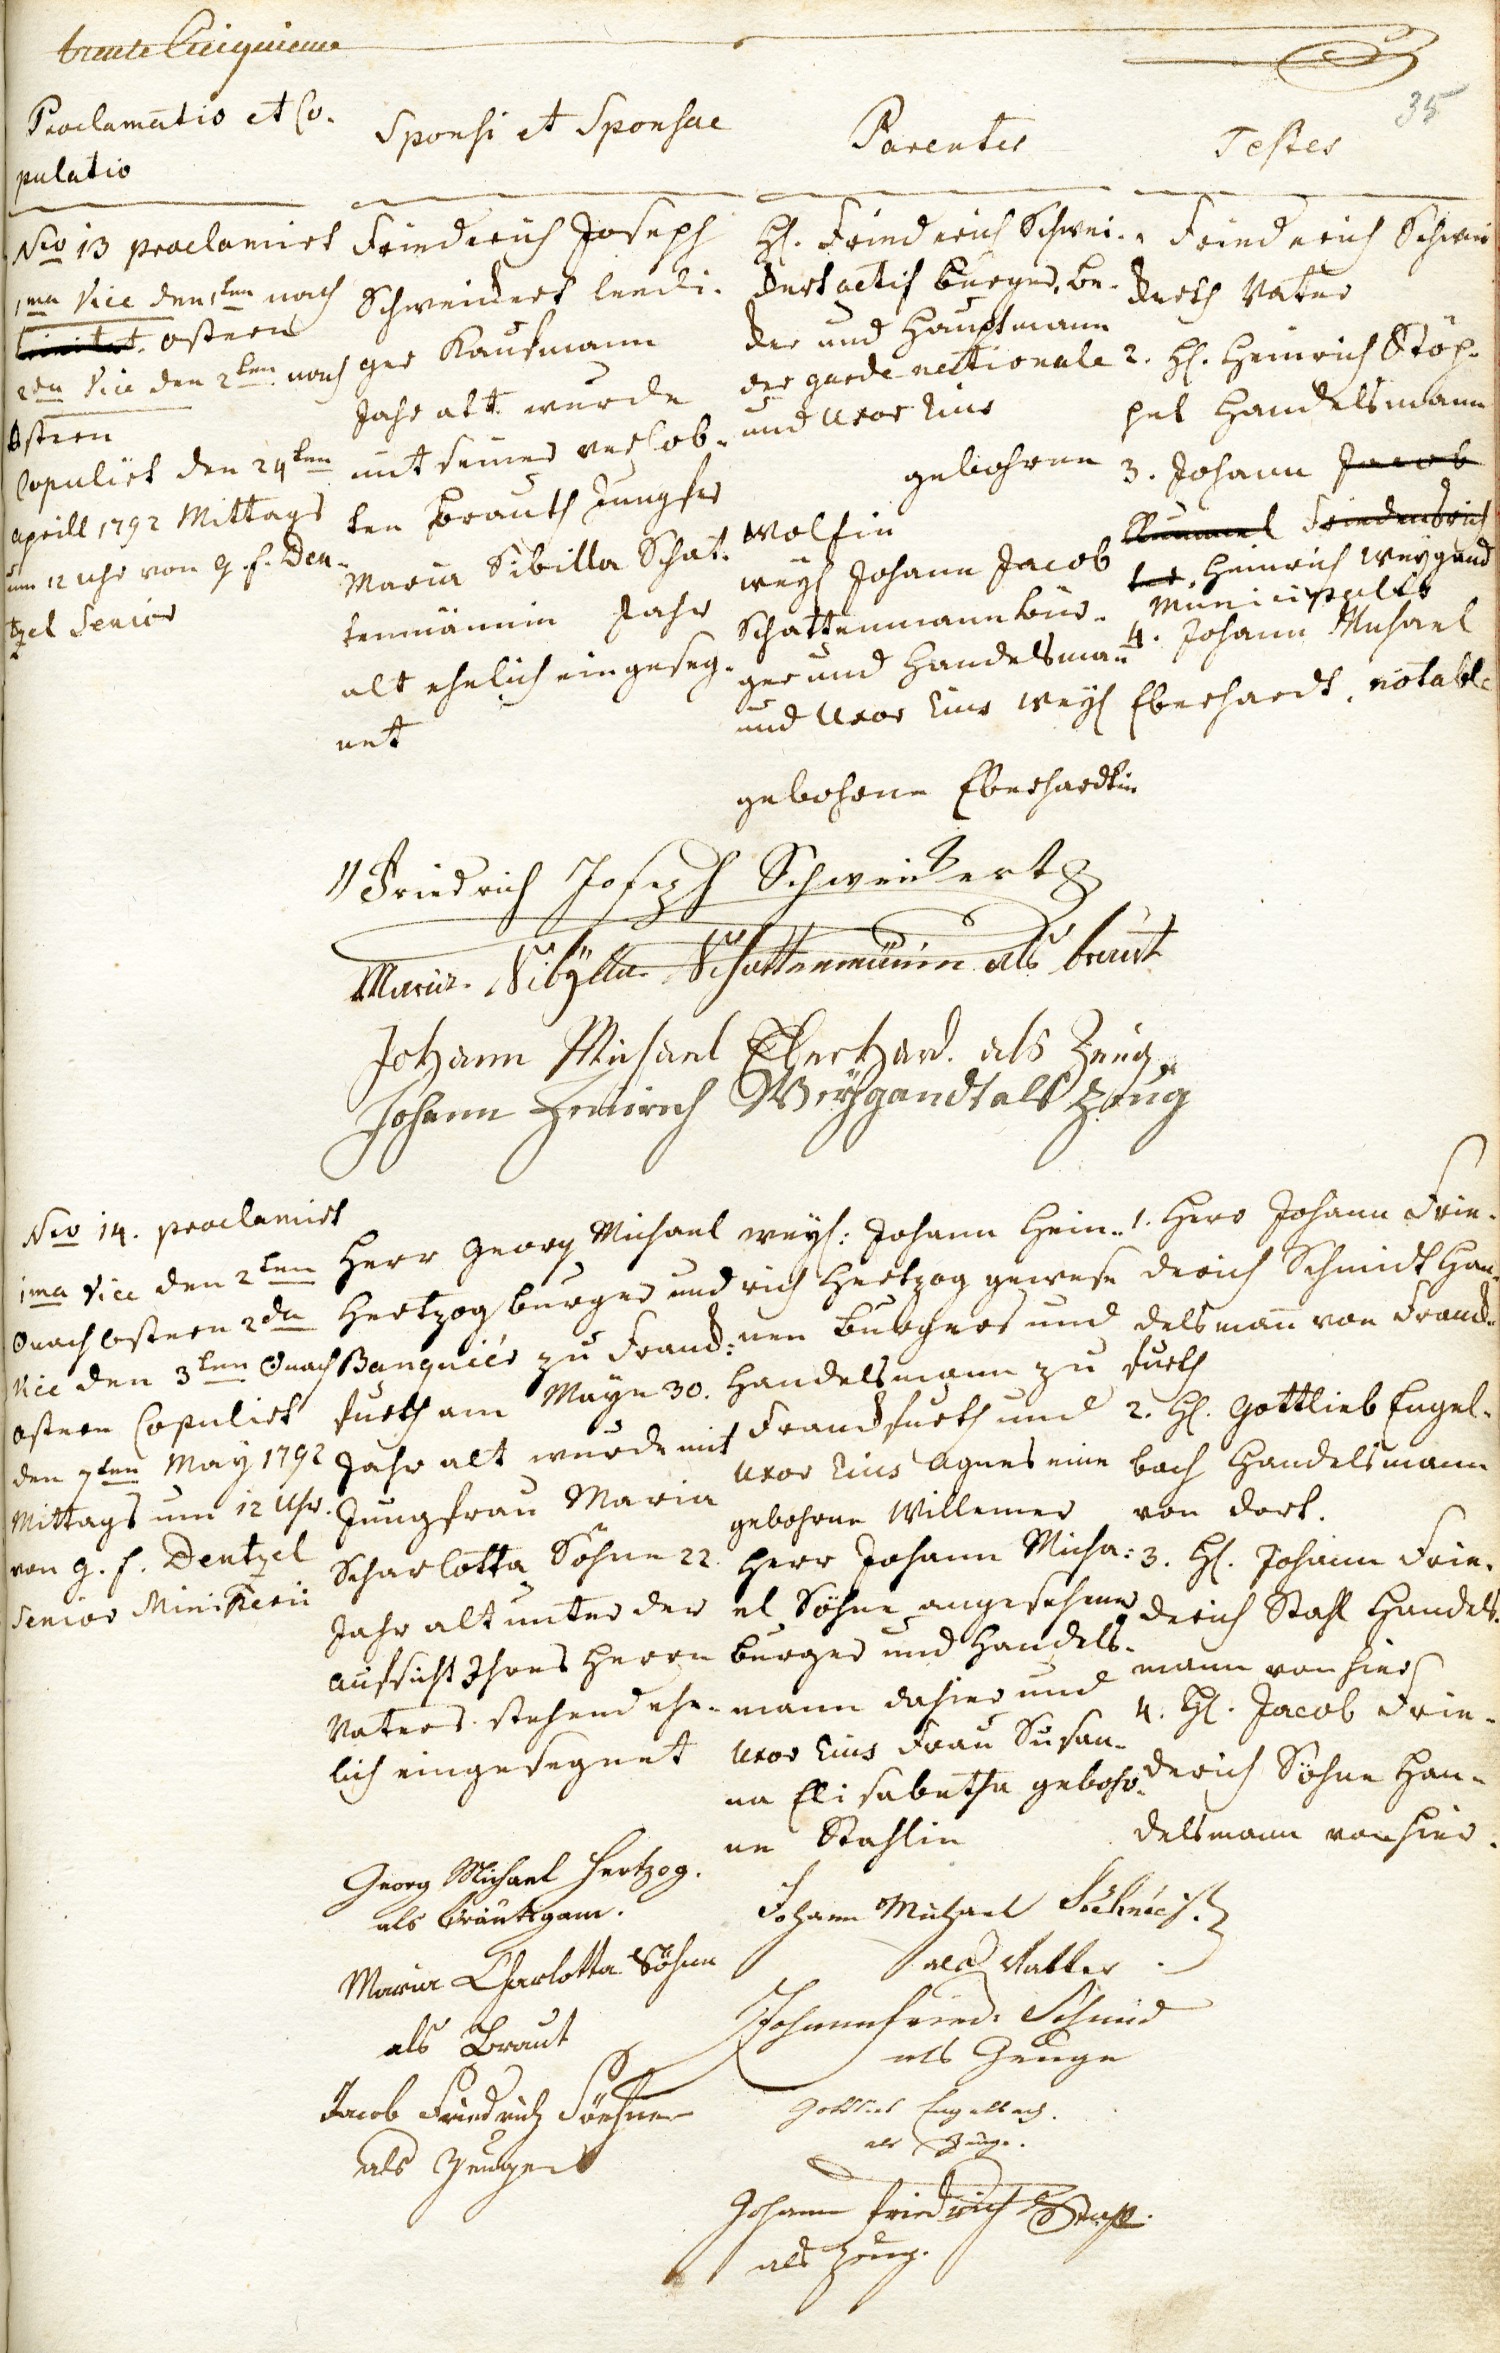 trente Cinquieme
35
Proclamatio et Co-
pulatio
Sponsi et Sponsae
Parentes
Testes
Nro 13 proclamirt
1ma Vice den 1ten nach
trinitat. ostern
2da Vice den 2ten nach
Ostern
Copulirt den 24ten
aprill 1792 Mittags
um 12 Uhr von g. f. Den-
tzel Senior
Friederich Joseph
Schweickert leedi-
ger Kaufmann
Jahr alt wurde
mit seiner verlob-
ten Brauth Jungfer
Maria Sibilla Schat-
tenmännin Jahr
alt ehelich eingeseg-
net
H. Friederich Schwei-
ckert actif Burger, Be-
cker und Hauptmann
der garde nationale
und Uxor Eius
gebohrne
Wolfin
weyl Johann Jacob
Schattenmann bur-
ger und Handelsmann
und Uxor Eius weyl
gebohrne Eberhardtin
1. Friederich Schwei
ckerth Vater
2. H. Heinrich Stöp-
pel Handelsmann
3. Johann Jacob
Kummel Friedenbrich
ter. Heinrich Weygand
Municipalis
4. Johann Michael
Eberhardt, notable
Friedrich Joseph Schweickert
Maria Sibylla Schattenmännin als braut
Johann Michael Eberhard. als Zeug
Johann Heinrich Weygandt als Zeug
Nro 14. proclamirt
1ma Vice den 2ten
nach ostern 2da
Vice den 3ten nach
ostern Copulirt
den 7ten May 1792
Mittags um 12 Uhr.
von g. f. Dentzel
Senior Ministerii
Herr Georg Michael
Hertzog burger und
Banquier zu Franck-
furth am Mayn 30.
Jahr alt wurde mit
Jungfrau Maria
Scharlotta Söhne 22
Jahr alt unter der
aufsicht Ihres Herrn
Vaters stehend ehe-
lich eingesegnet
weyl: Johann Hein-
rich Hertzog gewese
nen Burgers und
Handelsmann zu
Franckfurth und
Uxor Eius Agnes eine
gebohrne Willemer
Herr Johann Micha-
el Söhne angesehener
burger und Handels-
mann dahier und
Uxor Eius Frau Susan-
na Elisabetha gebohr-
ne Stahlin
1. Herr Johann Frie-
derich Schmidt Han-
delsmann von Franck-
furth
2. H. Gottlieb Engel-
bach Handelsmann
von dort.
3. H. Johann Frie-
derich Stahl Handels-
mann von hier
4. H. Jacob Frie-
derich Söhne Han-
delsmann von hier.
Georg Michael Hertzog.
als Bräutigam.
Maria Charlotta Söhne
als Braut
Jacob Friedrich Söehner
als Zeuge
Johann Michael
als Vatter
Johann Fried. Schmid
als Zeuge
Gottlieb Engelbach.
als Zeuge.
Johann Friedrich Stahl.
als Zeug.